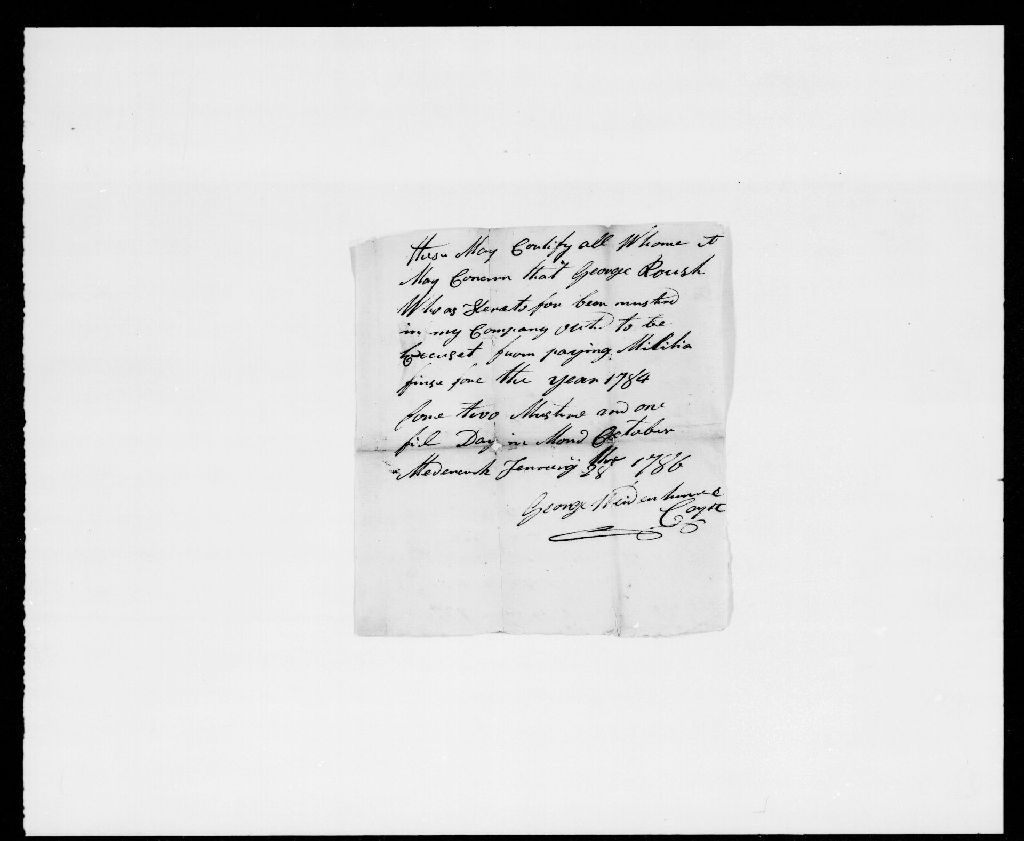 these May Certify all Whome it
May Conern that George Roush
Who as for been mustred
in my Company to be
Excuset from paying Militia
finse fore the year 1784
fore two Mustrne and one
fil Day in Mond October
Jennuary 28 1786
George Weidenhamer
Capt